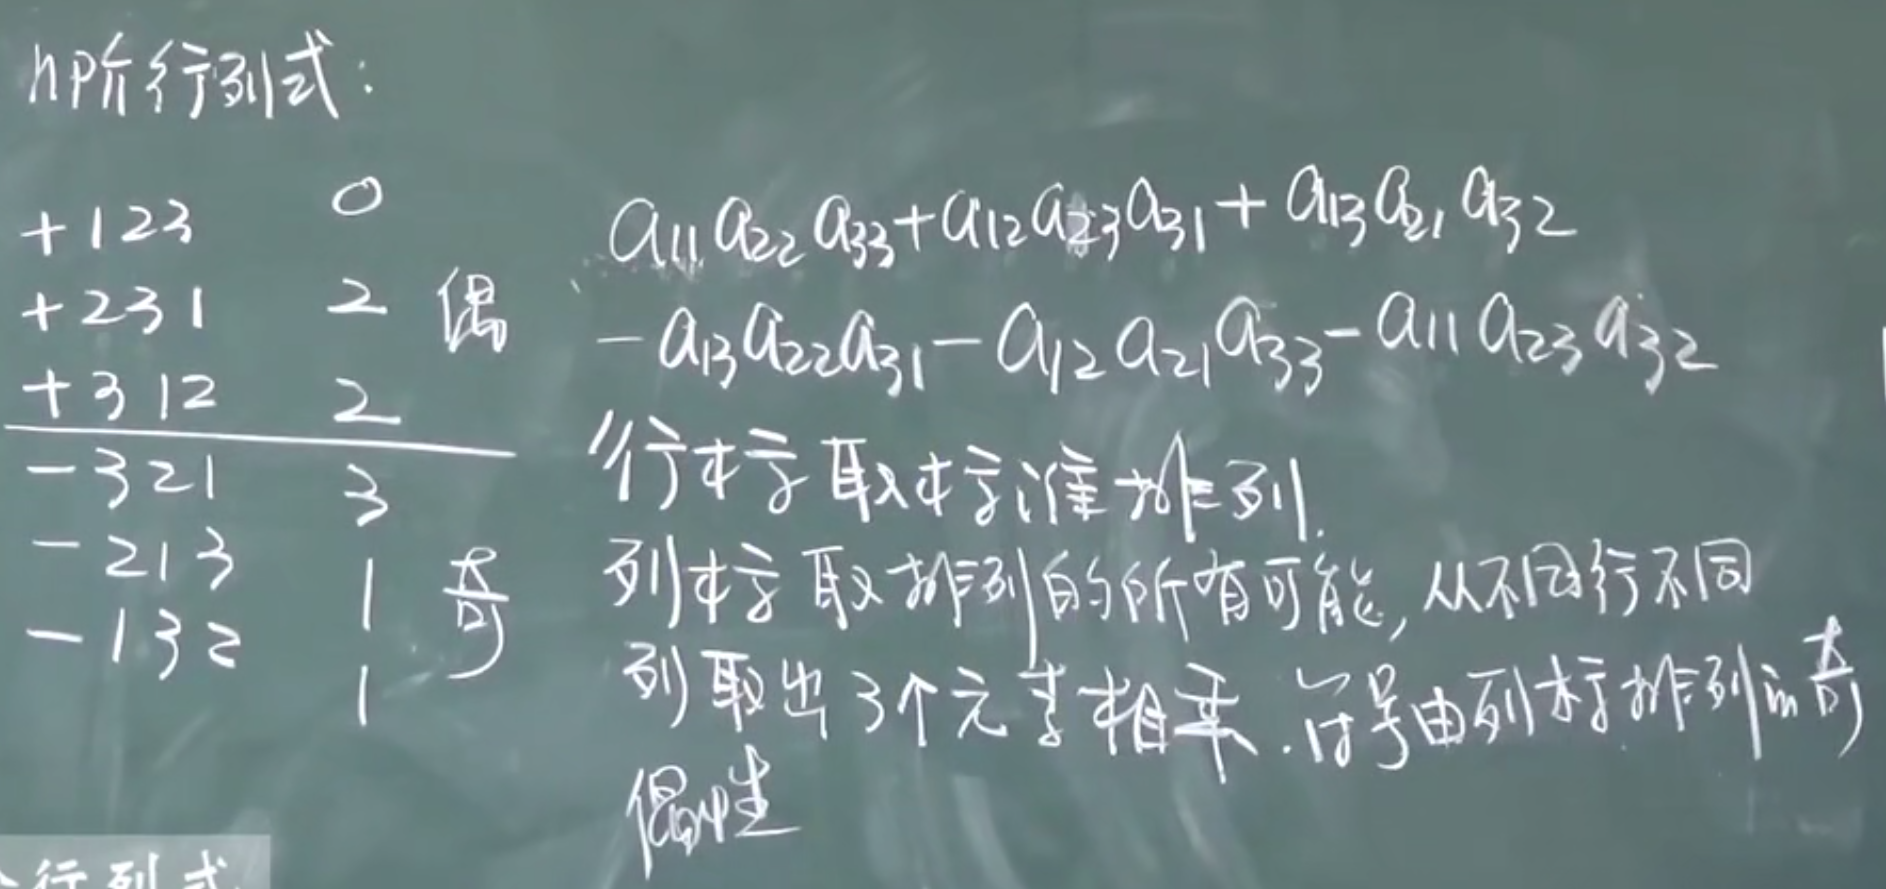 n阶行列式:
+123 0
+231 2 偶
+312 2
-321 3
-213 1 奇
-132 1
a11a22a33+a12a23a31+a13a21a32
-a13a22a31-a12a21a33-a11a23a32
行标取标准排列.
列标取排列的所有可能,从不同行不同
列取出3个元素相乘.符号由列标排列的奇
偶性
行列式